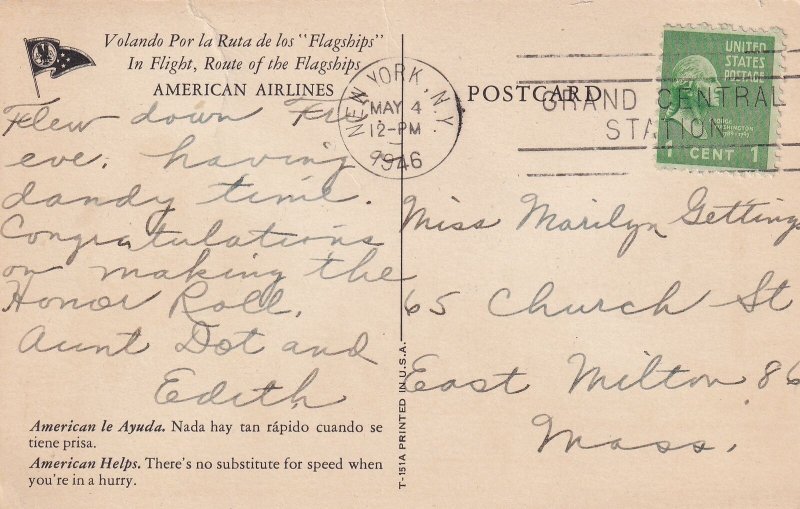 Volando Por la Ruta de los "Flagships"
In Flight, Route of the Flagships
AMERICAN AIRLINES
Flew down Fri
eve. having
dandy time.
Congratulations
on making the
Honor Roll.
Aunt Dot and
Edith
American le Ayuda. Nada hay tan rápido cuando se
tiene prisa.
American Helps. There's no substitute for speed when
you're in a hurry.
T-151A PRINTED IN U.S.A.
NEW YORK, N.Y.
MAY 4
12-PM
1946
POSTCARD
GRAND CENTRAL
STATION
UNITED
STATES
POSTAGE
WASHINGTON
1 CENT 1
Miss Marilyn Gettings
65 Church St
East Milton 86
Mass.